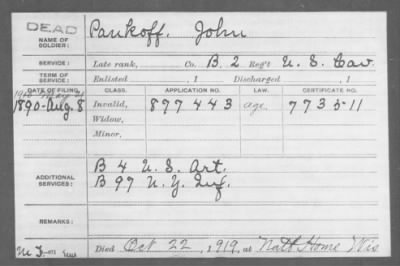 DEAD
NAME OF SOLDIER: Pankoff, John
SERVICE: Late rank, Co. B, 2 Reg't U. S. Cav.
TERM OF SERVICE: Enlisted , 1 Discharged , 1
DATE OF FILING. CLASS. APPLICATION NO. LAW. CERTIFICATE NO.
1890-Aug. 8 Invalid, 877443 age. 7735-11
Widow,
Minor,
B 4 U. S. Art.
ADDITIONAL SERVICES: B 97 N. Y. Inf.
REMARKS:
Died Oct 22, 1919, at Natl Home Wis